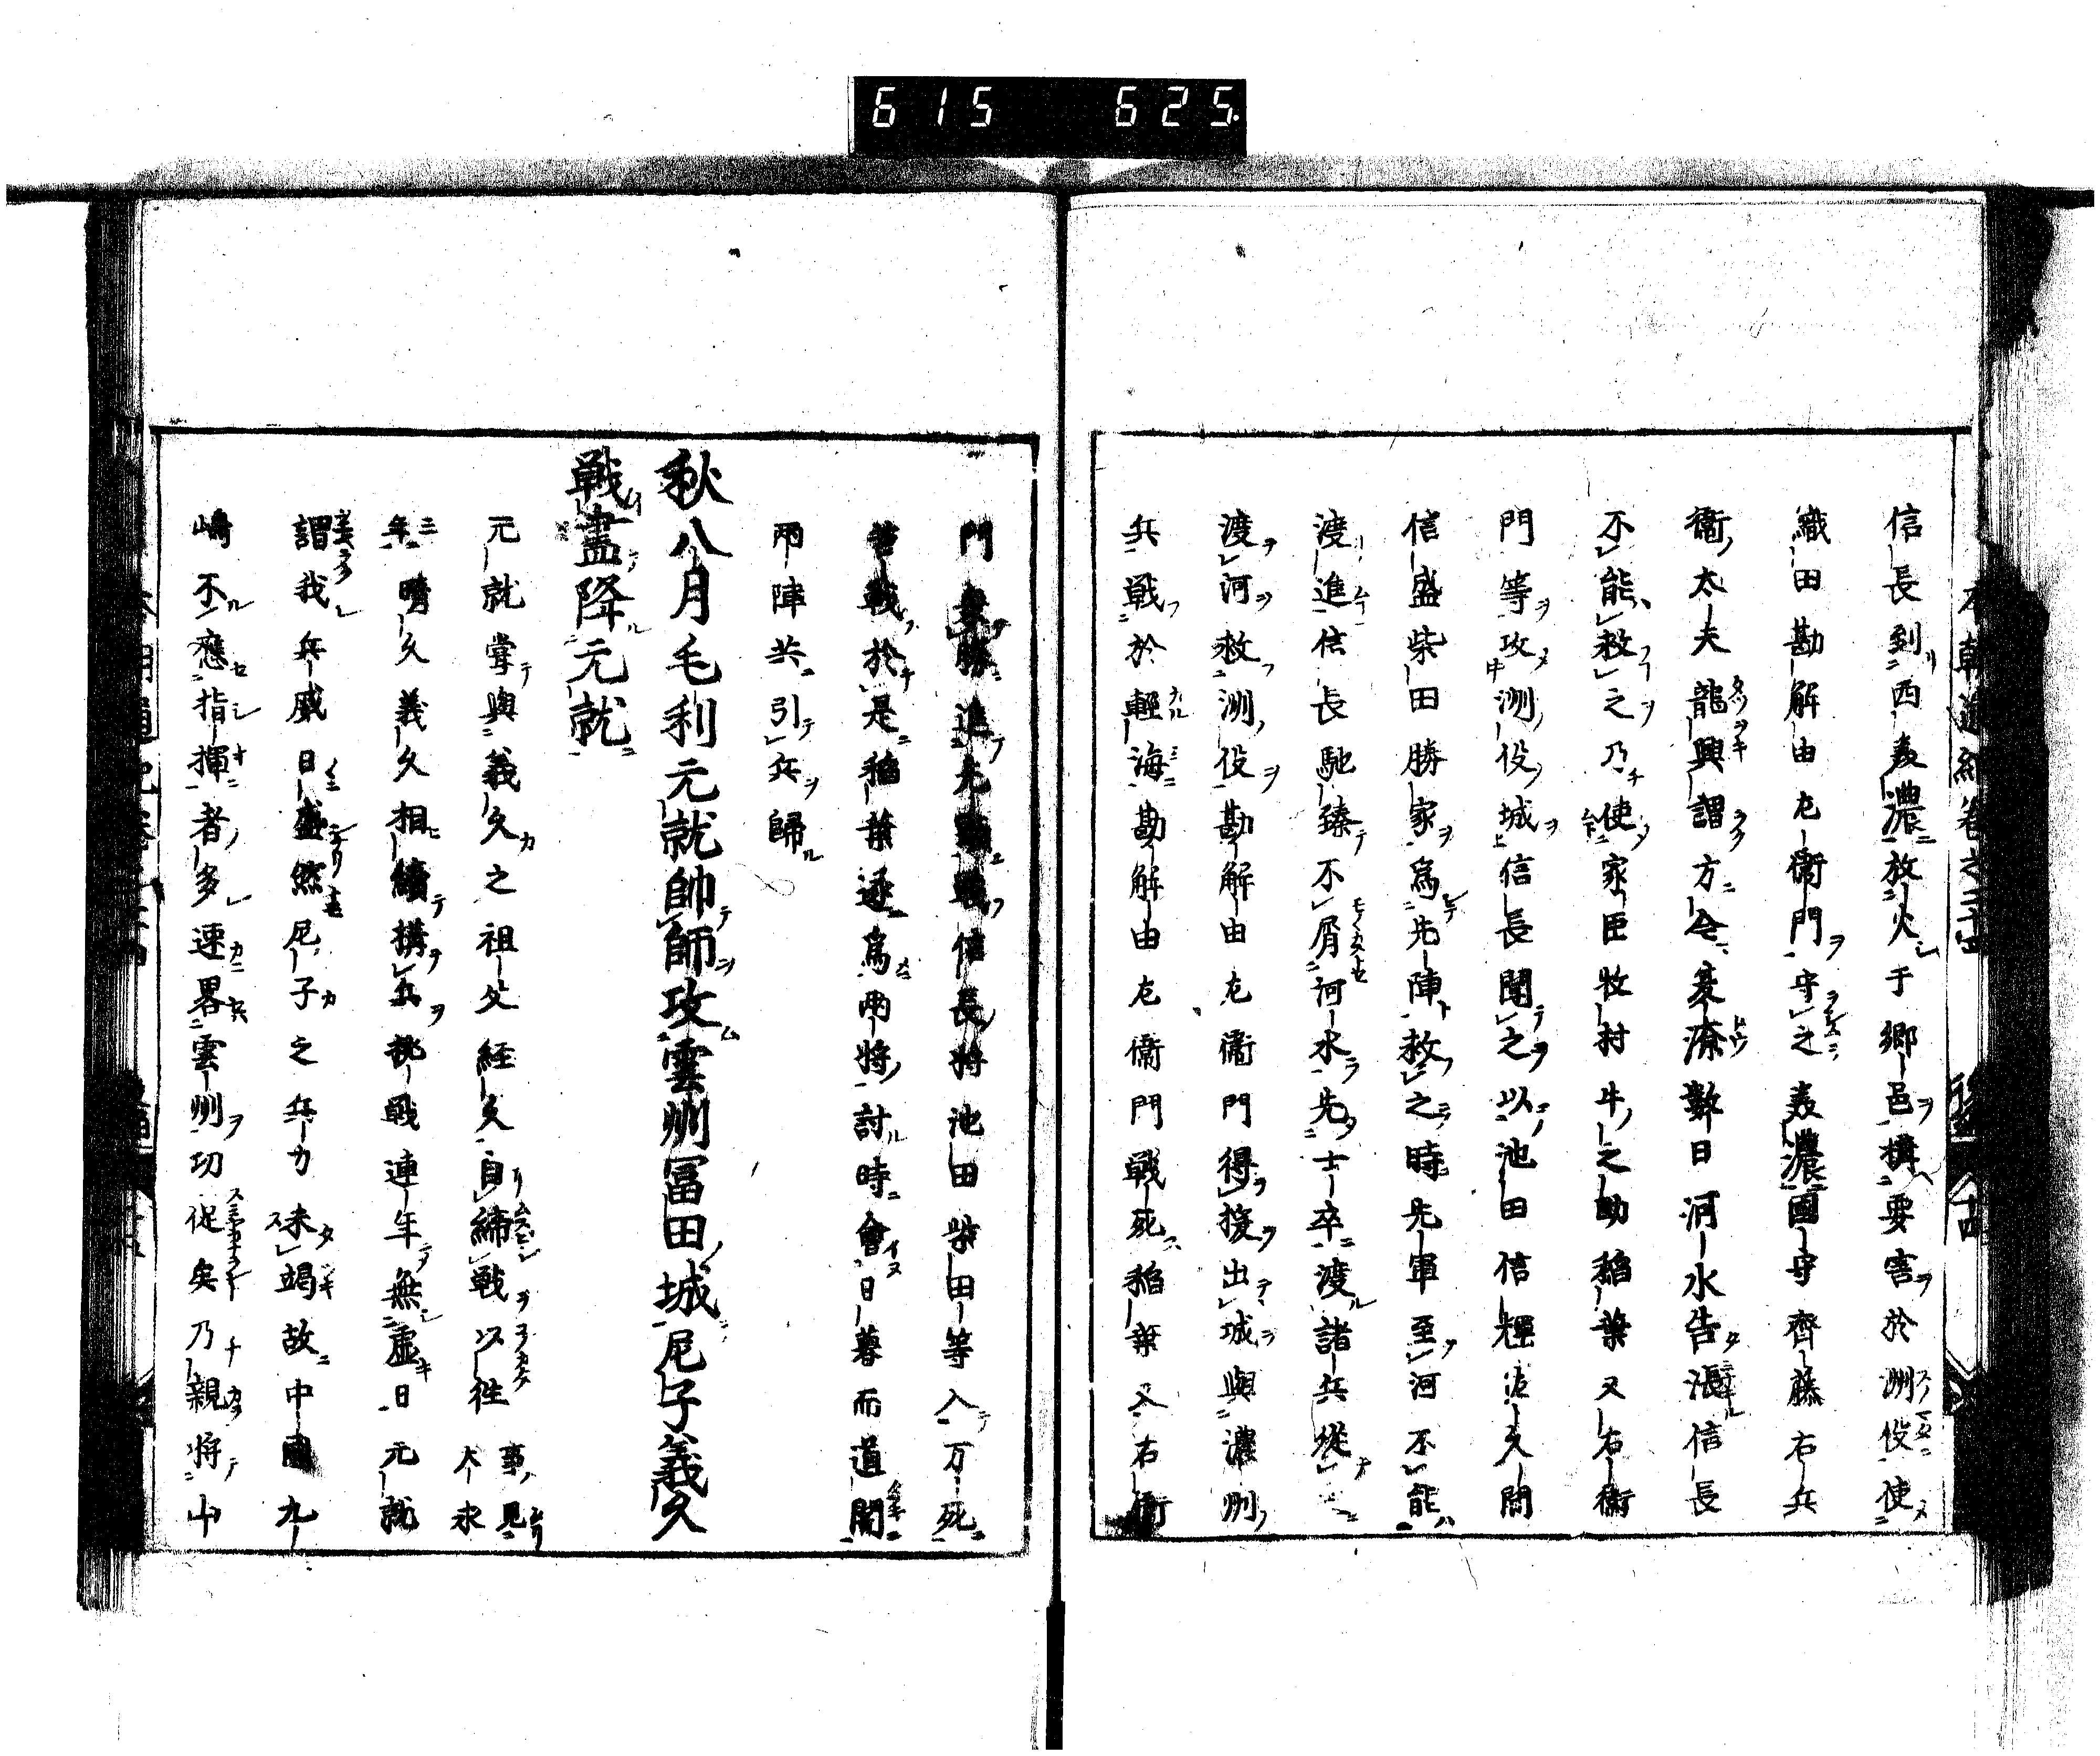 615 625
信長到西美濃放火于郷邑構要害於洲役使
織田勘解由左衛門守之美濃國守齊藤右兵
衛太夫龍興謂方令數日河水告漲信長
不能救之乃使家臣牧村牛之助稲葉又右衛
門等攻洲役城信長聞之以池田信輝佐久間
信盛柴田勝家為先陣救之時先軍至河不能
渡進信長馳臻不屑河水先士卒渡諸兵從
渡河救洲役勘解由左衛門得援出城與濃州
兵戰於輕海勘解由左衛門戰死稲葉又右衛
門進先戰信長將池田柴田等入万死
戰於是稲葉遂為兩將討時會日暮而道闇
兩陣共引兵歸
秋八月毛利元就帥師攻雲州冨田城尼子義久
戰盡降元就
元就掌與義久之祖父経久自締戰以往 事見大永
二年 晴久義久相續構兵挑戰連年無虚日元就
謂我兵威日盛然尼子之兵力未竭故中國九
嶋不應指揮者多速畧雲州功從矣乃親將中